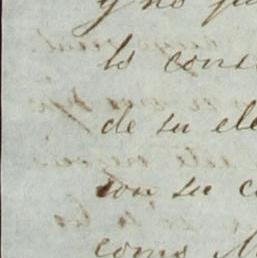 y no
lo cons
de su ele
con su c
como